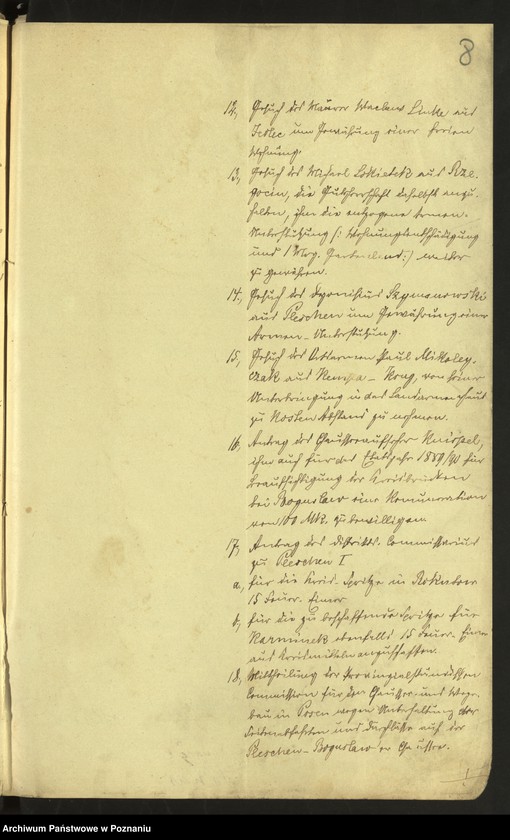 8
12, Gesuch des Maurer Waclaw Linke aus
Jedlec um Gewährung einer freien
Wohnung.
13, Gesuch des Michael Lokietek aus Rze-
gocin, die Gutsherrschaft daselbst anzu-
halten, ihm die entzogene Armen-
Unterstützung (: Wohnungsentschädigung
und 1 Mrg. Gartenland :) weiter
zu gewähren.
14, Gesuch des Dyonisius Szymanowski
aus Pleschen um Gewährung einer
Armen-Unterstützung.
15, Gesuch des Ortsarmen Paul Mikolay-
czak aus von seiner
Unterbringung in das Landarmenhaus
zu Kosten Abstand zu nehmen.
16, Antrag des Chausseeaufseher
ihm auch für das Etatsjahr 1889/90 für
Beaufsichtigung der Kreisbrücken
bei Boguslaw eine Remuneration
von 100 Mk. zu bewilligen
17, Antrag des Distrikts-Commissarius
zu Pleschen I
a, für die Kreis-Spritze in Rokutow
15 Feuer-Eimer
b, für die zu beschaffende Spritze für
Karminek ebenfalls 15 Feuer-Eimer
aus Kreismitteln anzuschaffen.
18, Mittheilung der Provinzialständischen
Commission für den Chaussee- und Wege-
bau in Posen wegen Unterhaltung der
und Durchlässe auf der
Pleschen-Boguslaw'er Chaussee.
Archiwum Państwowe w Poznaniu